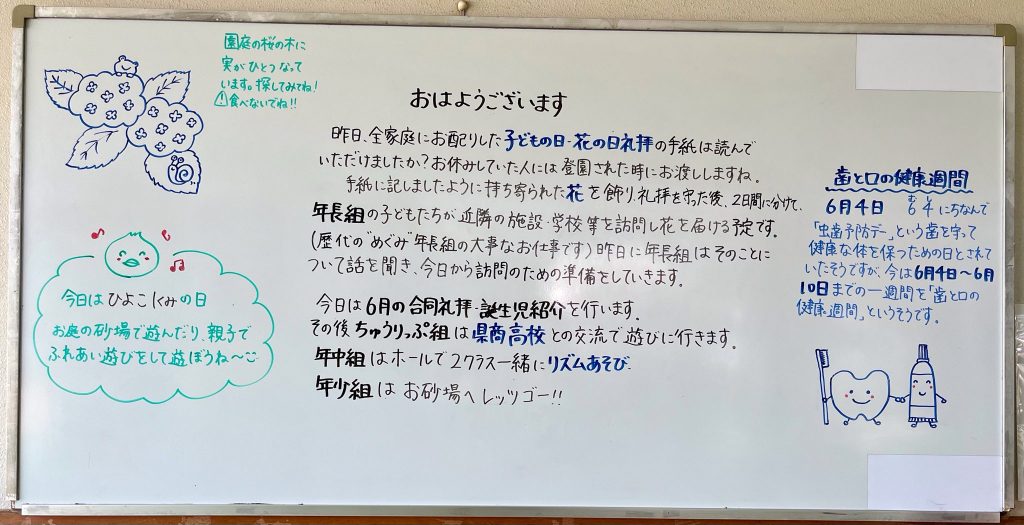 園庭の桜の木に
実がひとつなって
います。探してみてね!
⚠食べないでね!!
おはようございます
昨日、全家庭にお配りした子どもの日・花の日礼拝の手紙は読んで
いただけましたか?お休みしていた人には登園された時にお渡ししますね。
手紙に記しましたように持ち寄られた花を飾り、礼拝を守った後、2日間に分けて、
年長組の子どもたちが近隣の施設・学校等を訪問し花を届ける予定です。
(歴代の"めぐみ"年長組の大事なお仕事です)昨日に年長組はそのことに
ついて話を聞き、今日から訪問のための準備をしていきます。
今日は6月の合同礼拝・誕生児紹介を行います。
その後ちゅうりっぷ組は県商高校との交流で遊びに行きます。
年中組はホールで2クラス一緒にリズムあそび
年少組はお砂場へレッツゴー!!
今日はひよこくみの日
お庭の砂場で遊んだり、親子で
ふれあい遊びをして遊ぼうね〜
歯と口の健康週間
6月4日 6(む)4(し)にちなんで
「虫歯予防デー」という歯を守って
健康な体を保つための日とされて
いたそうですが、今は6月4日〜6月
10日までの一週間を「歯と口の
健康週間」というそうです。